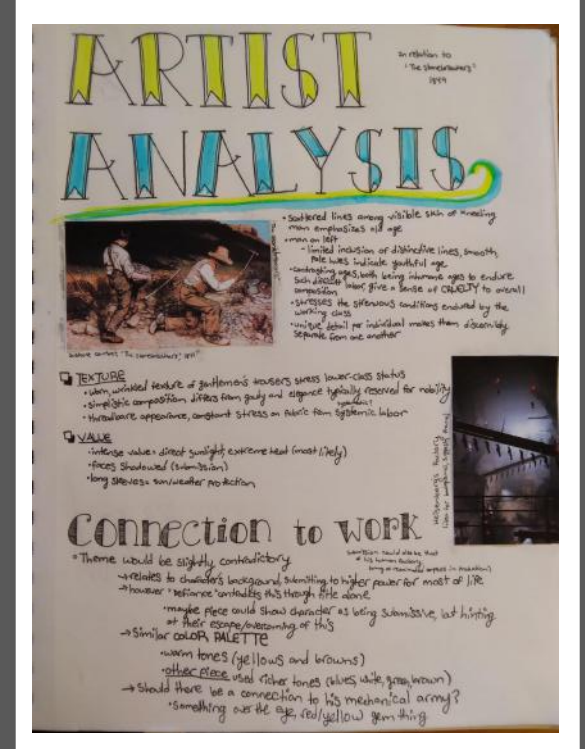 ARTIST
in relation to
"The Stonebreakers"
1849
ANALYSIS
• scattered lines among visible skin of kneeling
man emphasizes old age
• man on left
- limited inclusion of distinctive lines, smooth,
pale hues indicate youthful age
• contrasting ages, both being inhumane ages to endure
such difficult labor, give a sense of CRUELTY to overall
composition
• stresses the strenuous conditions endured by the
working class
• unique detail per individual makes them discernibly
separate from one another
Gustave Courbet "The Stonebreakers",
TEXTURE
• worn, wrinkled texture of gentlemen's trousers stress lower-class status
• simplistic composition differs from gaudy and elegance typically reserved for nobility
• threadbare appearance, constant stress on fabric from systemic labor
VALUE
• intense value = direct sunlight, extreme heat (most likely)
• faces shadowed (submission)
• long sleeves = sun/weather protection
Heisenberg's Factory
Connection to work
• Theme would be slightly contradictory
submission could also be that
of his human factory
→ relates to character's background, submitting to higher power for most of life
→ however "defiance" contradicts this through title alone
• maybe piece could show character as being submissive, but hinting
at their escape/overcoming of this
→ Similar COLOR PALETTE
• warm tones (yellows and browns)
• other piece used richer tones (blues, white, green, brown)
→ Should there be a connection to his mechanical army?
• Something over the eye, red/yellow gem thing